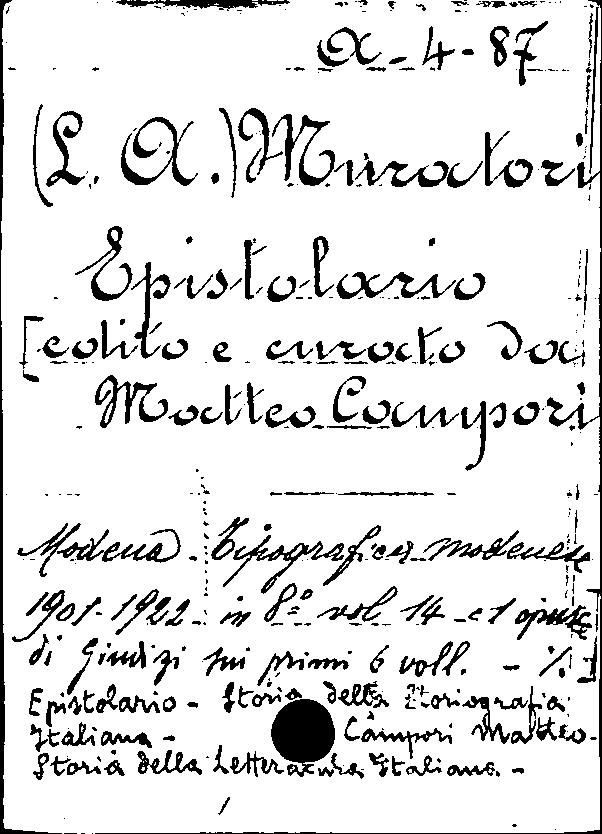 A-4-87
(L. A.) Muratori
Epistolario
[edito e curato da
Matteo Campori
Modena. Tipografica modenese
1901-1922 in 8º vol. 14 e 1 opusc
di Giudizi sui primi 6 voll. - %. ]
Epistolario - Storia della Storiografia
Italiana - Càmpori Matteo -
Storia della Letteratura Italiana. -